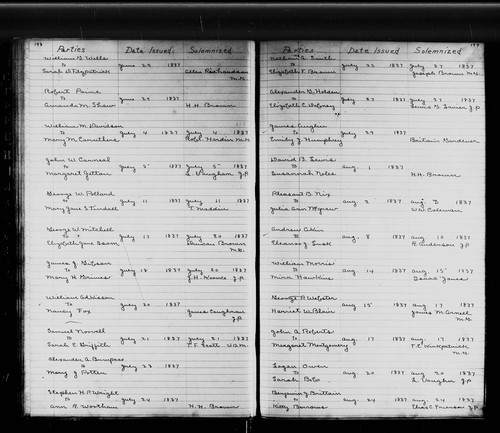 Parties Date Issued. Solemnized
William G. Wells
to June 22 1837
Sarah D. Fitzpatrick Allen Richardson
M.G.
Robert Paine
to June 29 1837
Amanda M. Shaw H.H. Brown
William M. Davidson
to July 4 1837 July 4 1837
Mary M. Caruthers Robt. Hardin M.G.
John W. Carmeal
to July 5 1837 July 5 1837
Margaret Getton L. Vaughan J.P.
George W. Pollard
to July 11 1837 July 11 1837
Mary Jane S. Tindall T. Maddin
George W. Mitchell
to July 17 1837 July 20 1837
Elizabeth Jane Isom Duncan Brown
M.G.
James G. Gibson
to July 18 1837 July 20 1837
Mary H. Grimes J.P.
William Addkison
to July 20 1837
Nancy Fox James Caughran
J.P.
Samuel Norvell
to July 21 1837 July 21 1837
Sarah E. Griffith F.E. Scott
Alexander A. Bumpass
to July 23 1837
Mary J. Potter
Stephen H.P. Wright
to July 24 1837 1837
Ann R. Wortham H.H. Brown
Parties Date Issued Solemnized
Nathan G. Smith
to July 22 1837 July 27 1837
Elizabeth F. Brown Joseph Brown M.G.
Alexander G. Holden
to July 27 1837 July 27 1837
Elizabeth C. J.P.
James Engler
to July 29 1837
Emily J. Humphrey Britain Gardener
David B. Lewis
to Aug. 1 1837
Susannah Noles H.H. Brown
Pleasant B. Nix
to Aug. 2 1837 Aug. 3 1837
Julia Ann McGraw Wm Coleman
Andrew Akin
to Aug. 8 1837 Aug. 10 1837
Eleanor J. Lusk R. Anderson J.P.
William Morris
to Aug. 14 1837 Aug. 15 1837
Mira Hawkins Isaac Jones
George P. Webster
to Aug. 15 1837 Aug. 17 1837
Harriet W. Blair James M. Arnell
M.G.
John A. Roberts
to Aug. 17 1837 Aug. 17 1837
Margaret Montgomery Kirkpatrick
M.G.
Logan Owen
to Aug. 20 1837 Aug. 20 1837
Sarah L. Vaughn J.P.
Benjamin J. Brittain
to Aug. 24 1837 Aug. 24 1837
Kitty Burrows Chas. C. J.P.